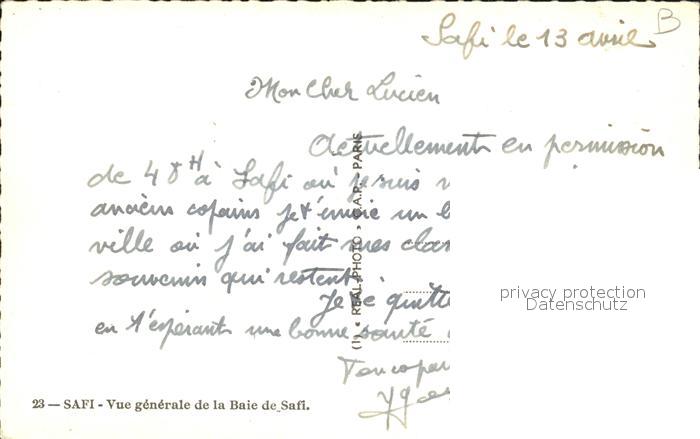 B
Safi le 13 avril
Mon Cher Lucien
Actuellement en permission
de 48H à Safi où je suis
anciens copains je t'envoie un
ville où j'ai fait mes
souvenirs qui restent.
Je te quitte
en t'espérant une bonne santé
Ton
(1) « REAL-PHOTO » C.A.P. - PARIS
privacy protection
Datenschutz
23 — SAFI - Vue générale de la Baie de Safi.